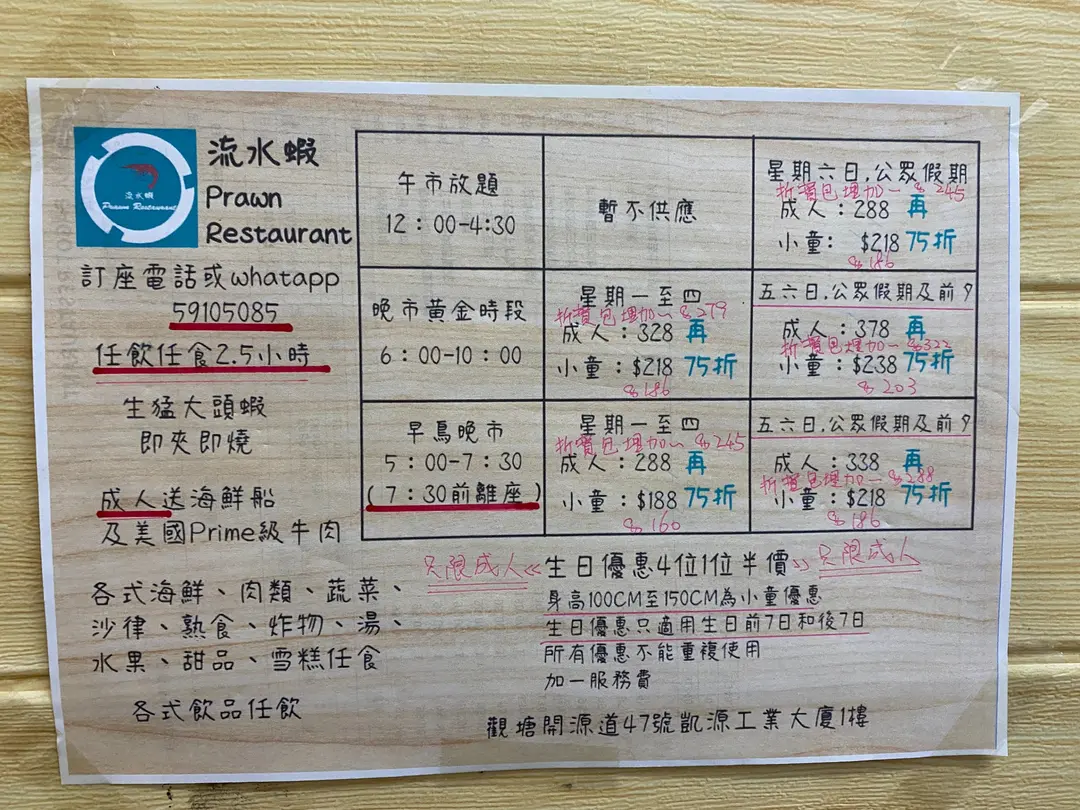 流水蝦
Prawn Restaurant
流水蝦
Prawn
Restaurant
訂座電話或whatapp
59105085
任飲任食2.5小時
生猛大頭蝦
即夾即燒
成人送海鮮船
及美國Prime級牛肉
各式海鮮、肉類、蔬菜、
沙律、熟食、炸物、湯、
水果、甜品、雪糕任食
各式飲品任飲
午市放題
12：00-4:30
暫不供應
星期六日,公眾假期
折實包埋加一 $245
成人：288 再
小童： $218 75折
$186
晚市黃金時段
6：00-10：00
星期一至四
折實包埋加一 $279
成人：328 再
小童：$218 75折
$186
五六日,公眾假期及前夕
成人：378 再
折實包埋加一 $322
小童：$238 75折
$203
早鳥晚市
5：00-7：30
(7：30前離座)
星期一至四
折實包埋加一 $245
成人：288 再
小童：$188 75折
$160
五六日,公眾假期及前夕
成人：338 再
折實包埋加一 $288
小童：$218 75折
$186
只限成人 《 生日優惠4位1位半價 》 只限成人
身高100CM至150CM為小童優惠
生日優惠只適用生日前7日和後7日
所有優惠不能重複使用
加一服務費
觀塘開源道47號凱源工業大廈1樓